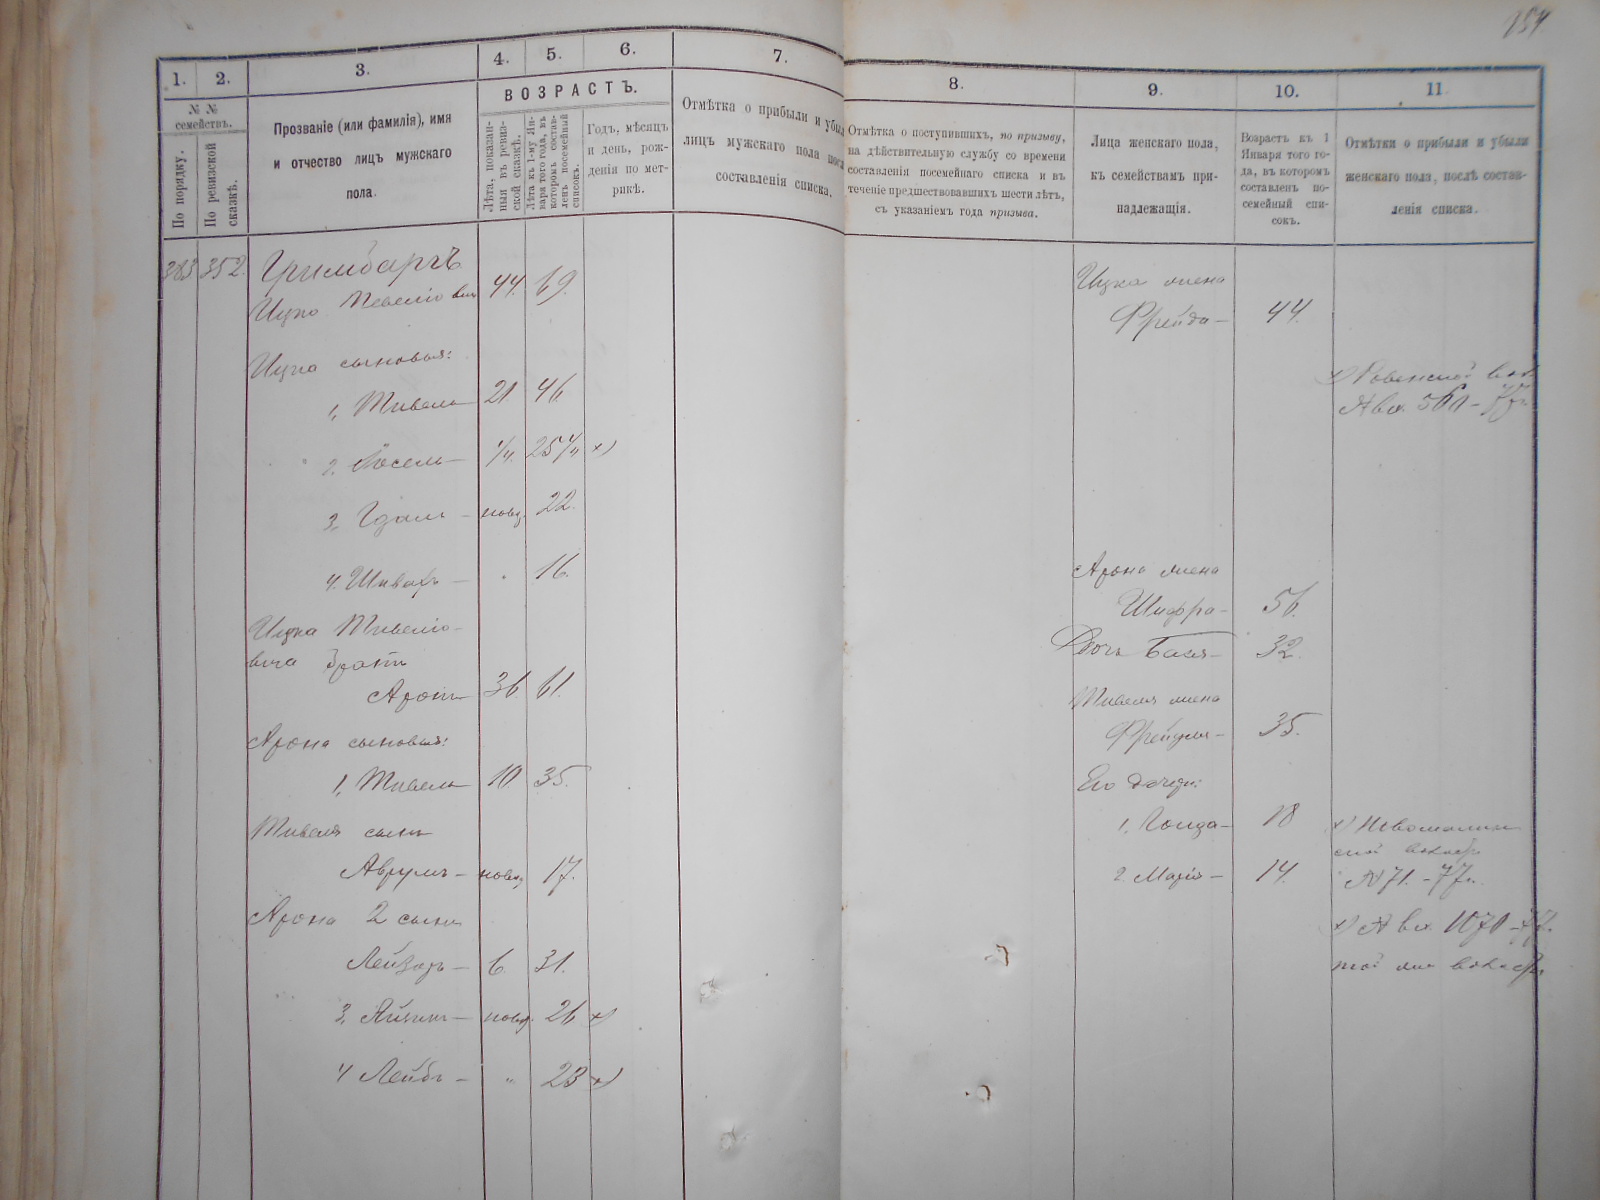 1.
2.
3.
4.
5.
6.
7.
8.
9.
10.
11
№ №
семействъ.
По порядку.
По ревизской
сказкѣ.
Прозваніе (или фамилія), имя
и отчество лицъ мужскаго
пола.
ВОЗРАСТЪ.
Лѣта, показан-
ныя въ ревиз-
ской сказкѣ.
Лѣта къ 1-му Ян-
варя того года, въ
которомъ состав-
ленъ посемейный
списокъ.
Годъ, мѣсяцъ
и день, рож-
денія по мет-
рикѣ.
Отмѣтка о прибыли и убыли
лицъ мужскаго пола послѣ
составленія списка.
Отмѣтка о поступившихъ, по призыву,
на дѣйствительную службу со времени
составленія посемейнаго списка и въ
теченіе предшествовавшихъ шести лѣтъ,
съ указаніемъ года призыва.
Лица женскаго пола,
къ семействамъ при-
надлежащія.
Возрастъ къ 1
Января того го-
да, въ которомъ
составленъ по-
семейный спи-
сокъ.
Отмѣтки о прибыли и убыли
женскаго пола, послѣ состав-
ленія списка.
383 352. Гримбаръ
Ицко 44. 69.
Ицка жена
Фрейда — 44.
Ицка сыновья:
1, Тивель 21 46.
2. Іосель — 1/4. 25 1/4 ×)
×) Ровенской
№ вх. 560 - 77г.
3, Гдаль — новор. 22.
4. — " 16.
Арона жена
Шифра — 56.
Ицка Тивеліо-
вича братъ
Аронъ 36 61.
Дочь Бася — 32.
Арона сыновья:
1, Тивель 10 35.
Тивеля жена
Фрейдля — 35.
Его дочери:
1. Голда — 18
2. Марія — 14.
Тивеля сынъ
Аврумъ — новор. 17.
№ 71. - 77г.
Арона 2 сынъ
Лейзоръ — 6. 31.
×) № вх. 1070 - 77.
той же
3, — новор. 26 ×)
4 Лейбъ — " 23 ×)